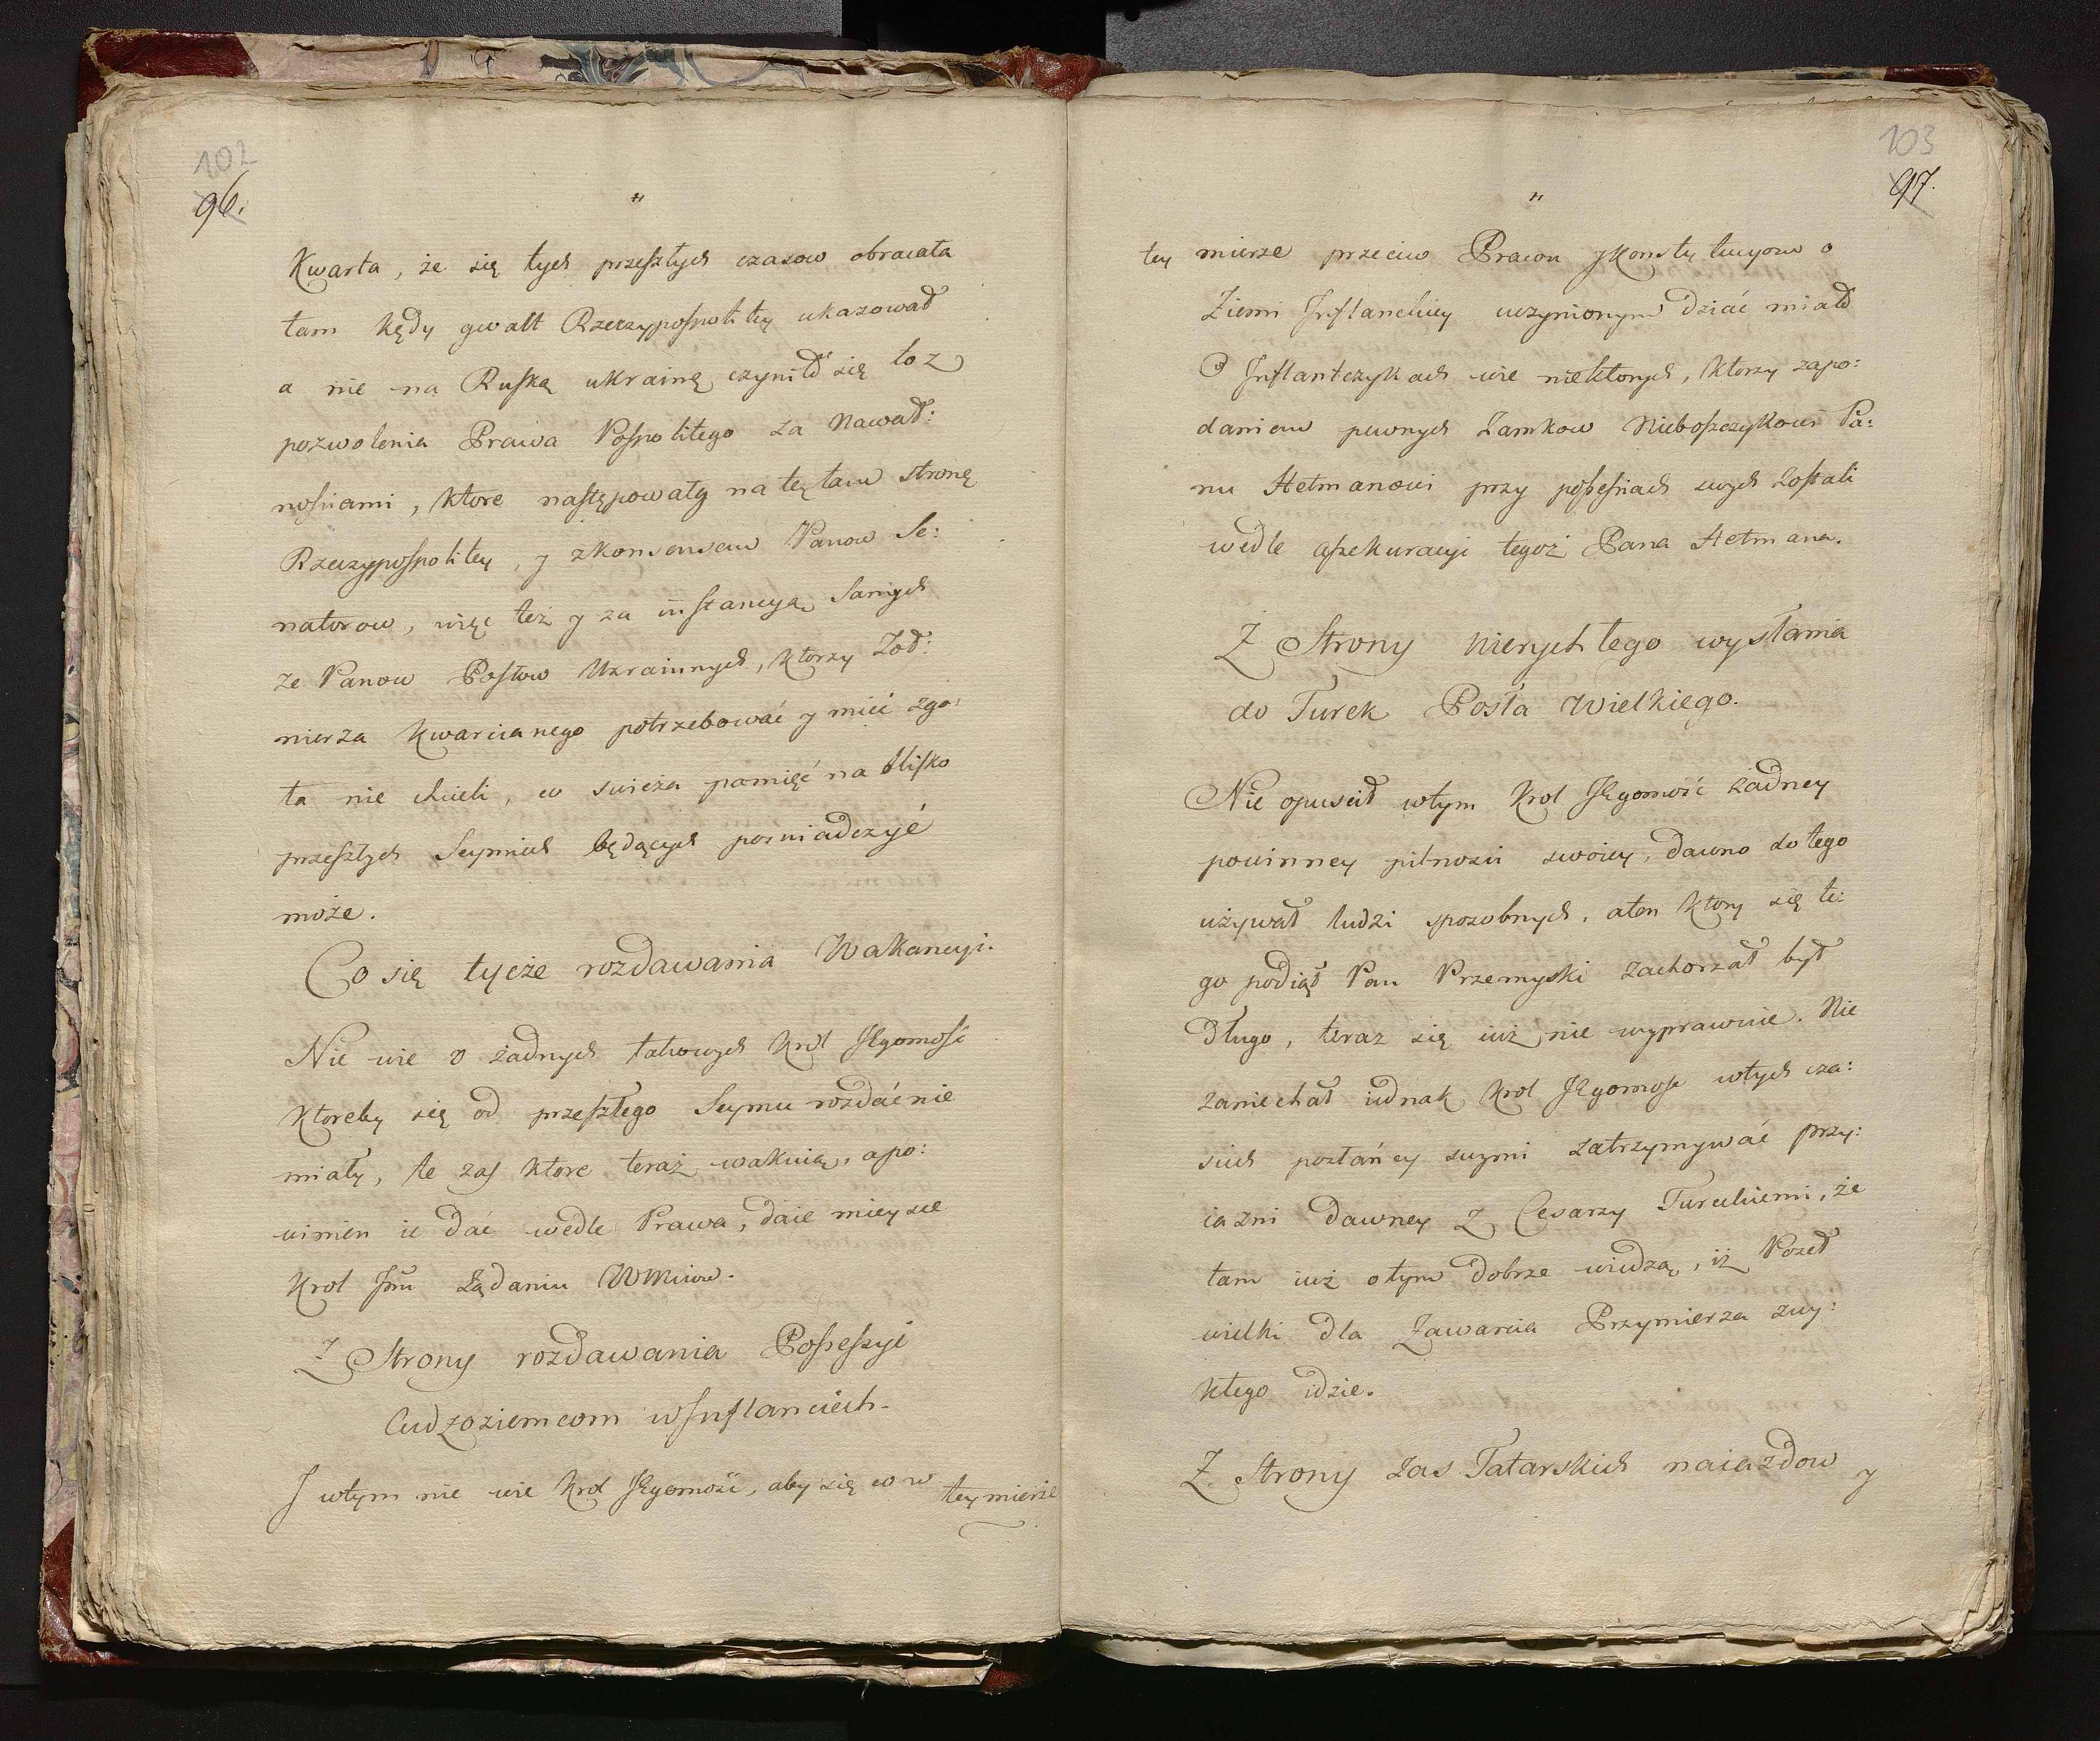 102
96.
"
Kwarta, że się tych przeszłych czasow obracała
tam kędy gwałt Rzeczypospolitey ukazował
a nie na Ruską ukrainę czynił się to z
pozwolenia Prawa Pospolitego za Nawał:
nosciami, ktore następowały na tę tam stronę
Rzeczypospolitey, y zkonsensem Panow Se:
natorow, więc też y za instancyą Samych
ze Panow Posłow Ukrainnych, ktorzy Żoł:
nierza Kwarcianego potrzebować y mieć zgo:
ła nie chcieli, co swieża pamięć na blisko
przeszłych Seymiech będących poswiadczyć
może.
Co się tycze rozdawania Wakancyi.
Nie wie o żadnych takowych Krol JEgomość
ktoreby się od przeszłego Seymu rozdać nie
miały, te zaś ktore teraz wakuią, a po:
winien ie dać wedle Prawa, daie mieysce
Krol Jmć Żądaniu WMciow.
Z Strony rozdawania Possessyi
Cudzoziemcom w Inflanciech.
J wtym nie wie Krol JEgomość, aby się co w
tey mierze
103
97.
"
tey mierze przeciw Prawu y Konstytucyom o
Ziemi Inflanckiey uczynionym dziać miało
O Inflantczykach wie niektorych, ktorzy zapo:
daniem pewnych Zamkow Nieboszczykowi Pa:
nu Hetmanowi przy possesiach swych zostali
wedle assekuracyi tegoż Pana Hetmana.
Z Strony nierychłego wysłania
do Turek Posła Wielkiego.
Nie opuscił wtym Krol JEgomość żadney
powinney pilnosci swoiey, dawno do tego
używał ludzi sposobnych, aten ktory się te:
go podiął Pan Przemyski zachorzał był
długo, teraz się iuż nie wyprawuie. Nie
zaniechał iednak Krol JEgomość wtych cza:
siech posłańcy swymi zatrzymywać przy:
iazni dawney z Cesarzy Tureckiemi, że
tam iuż otym dobrze wiedzą, iż Poseł
wielki dla Zawarcia Przymierza zwy:
kłego idzie.
Z Strony zas Tatarskich naiazdow y